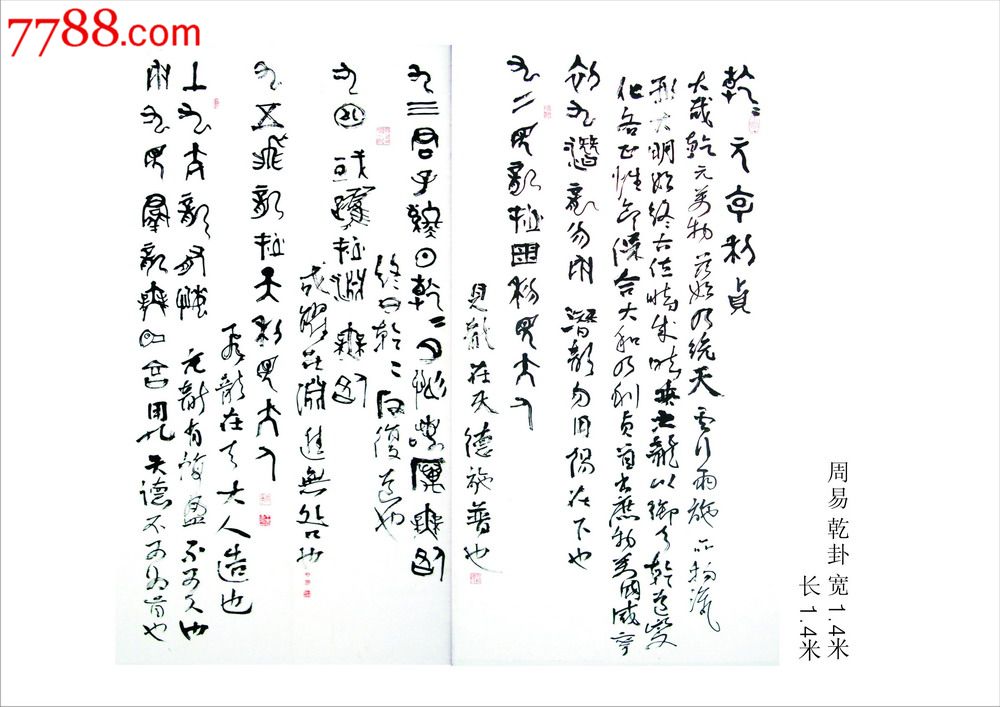 7788.com
乾〻元亨利貞
大哉乾元萬物資始乃統天雲行雨施品物流
形大明始終六位時成時乘六龍以御天乾道變
化各正性命保合大和乃利貞首出庶物萬國咸寧
初九潛龍勿用 潛龍勿用陽在下也
九二見龍在田利見大人
見龍在天德施普也
九三君子終日乾〻夕惕若厲無咎
終日乾〻反復道也
九四或躍在淵無咎
或躍在淵進無咎也
九五飛龍在天利見大人
飛龍在天大人造也
上九亢龍有悔 亢龍有悔盈不可久也
用九見羣龍無首吉 用九天德不可為首也
周易乾卦宽1.4米
长1.4米